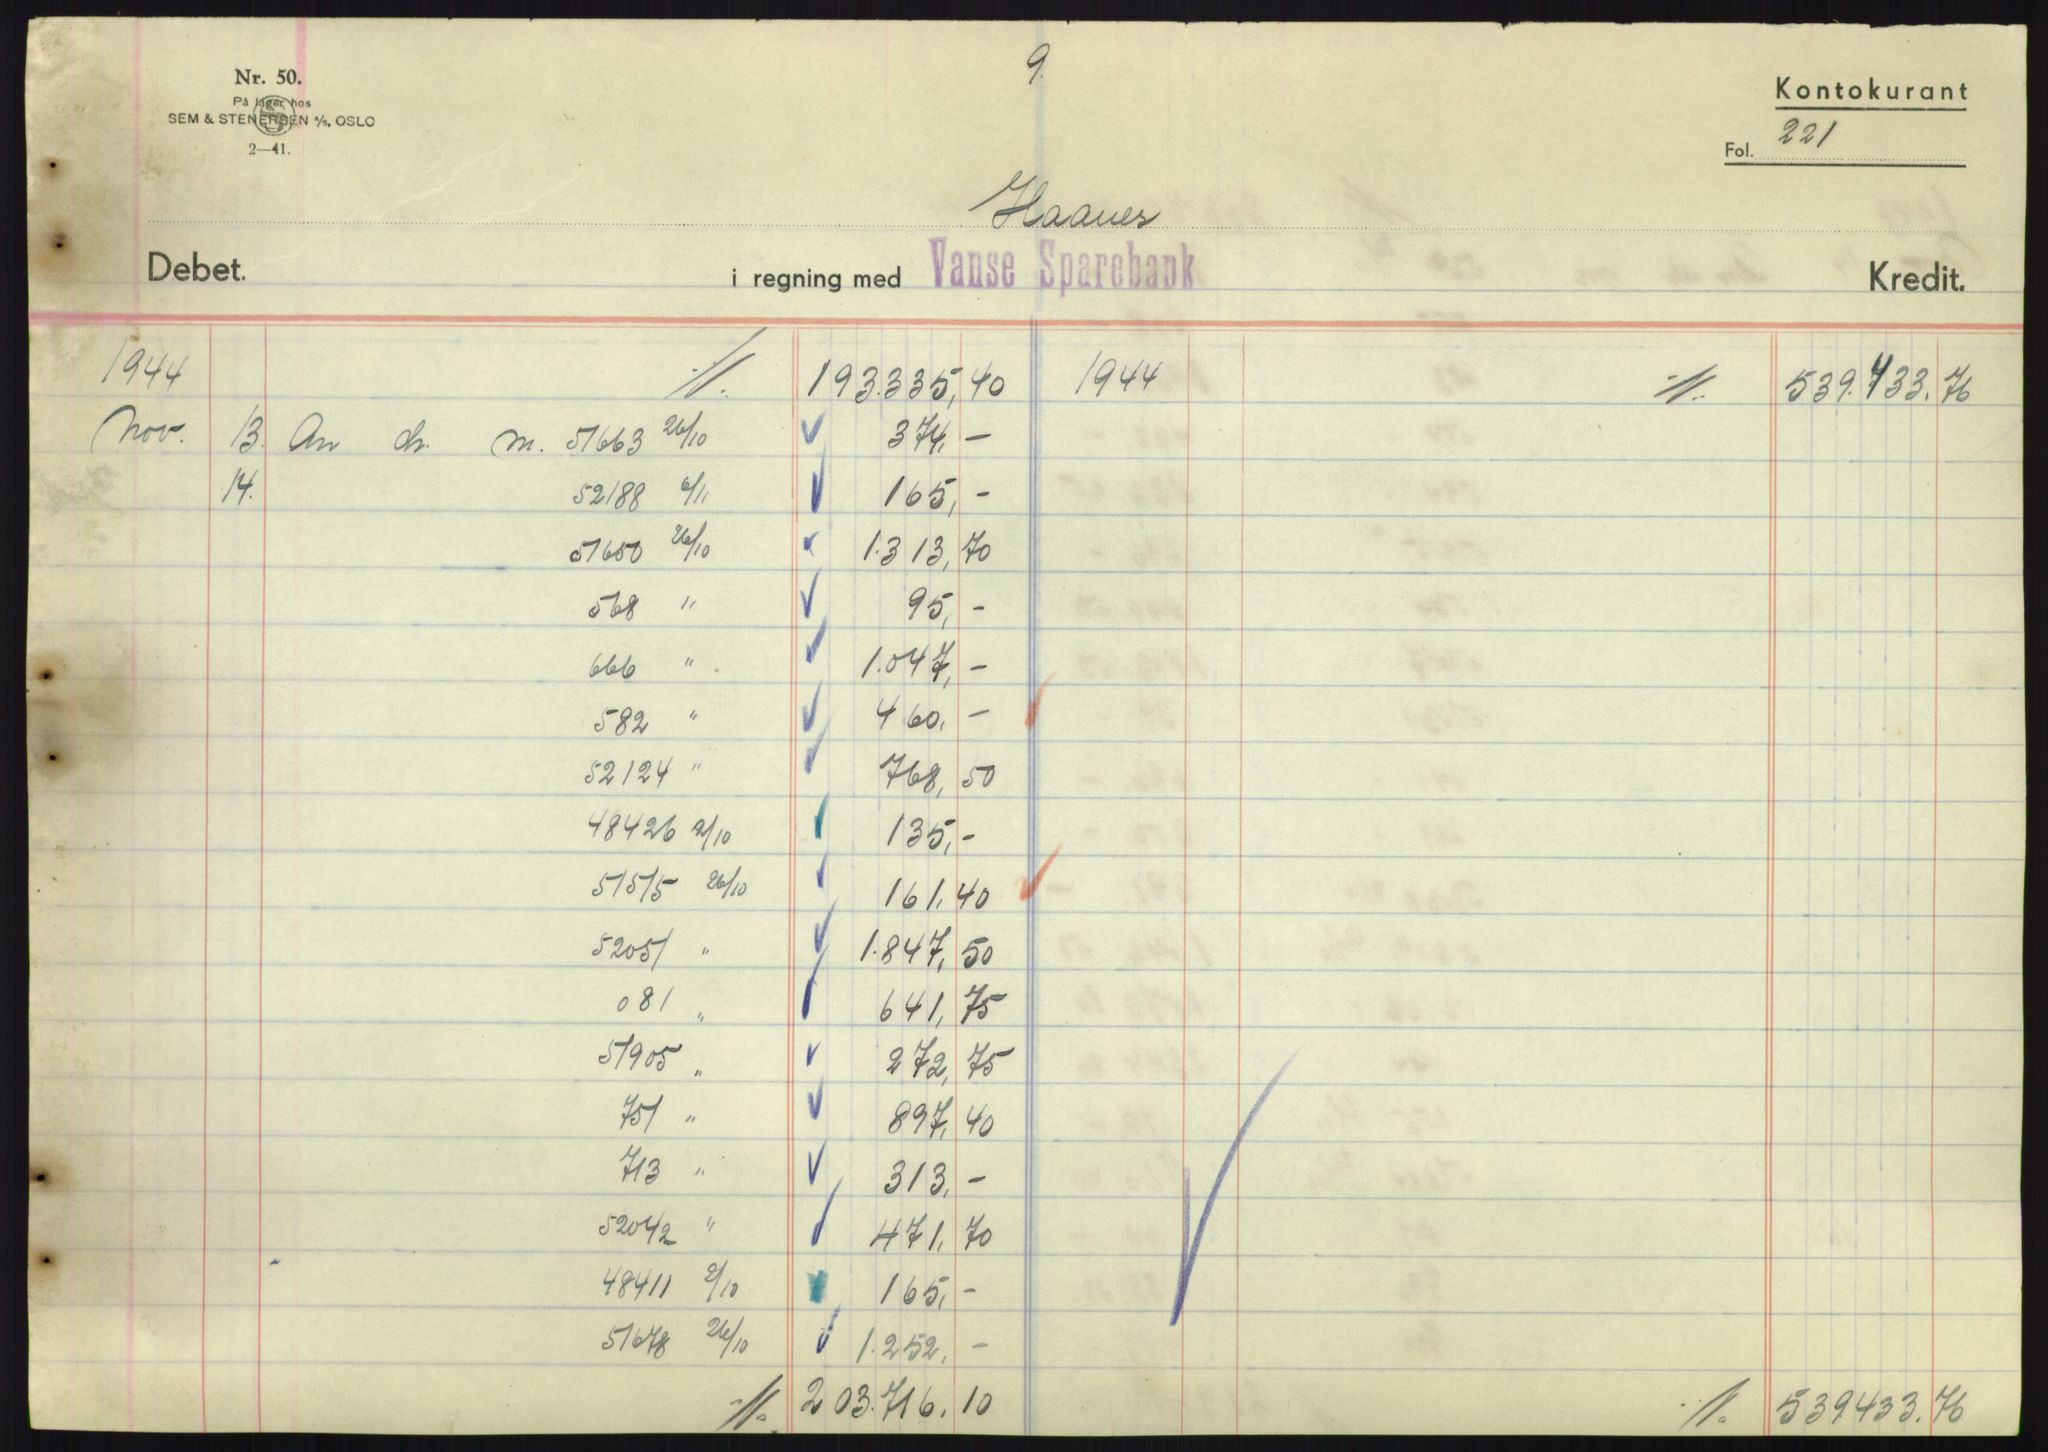 9.
Nr. 50.
På lager hos
SEM & STENERSEN A/S, OSLO
2—41.
Kontokurant
Fol. 221
Haanes
Debet. i regning med Vanse Sparebank Kredit.
1944 ·/. 193.335,40 1944 ·/. 539.433.76
Nov. 13. An ch. m. 51663 26/10 374,—
14. 52188 6/11 165,—
51650 26/10 1.313,70
568 " 95,—
666 " 1.047,—
582 " 460.—
52124 " 768,50
48426 2/10 135,—
51515 26/10 161.40
52051 " 1.847,50
081 " 641,75
51905 " 272,75
751 " 897,40
713 " 313,—
52042 " 471,70
48411 2/10 165,—
51678 26/10 1.252,—
·/. 203.716.10 ·/. 539433.76